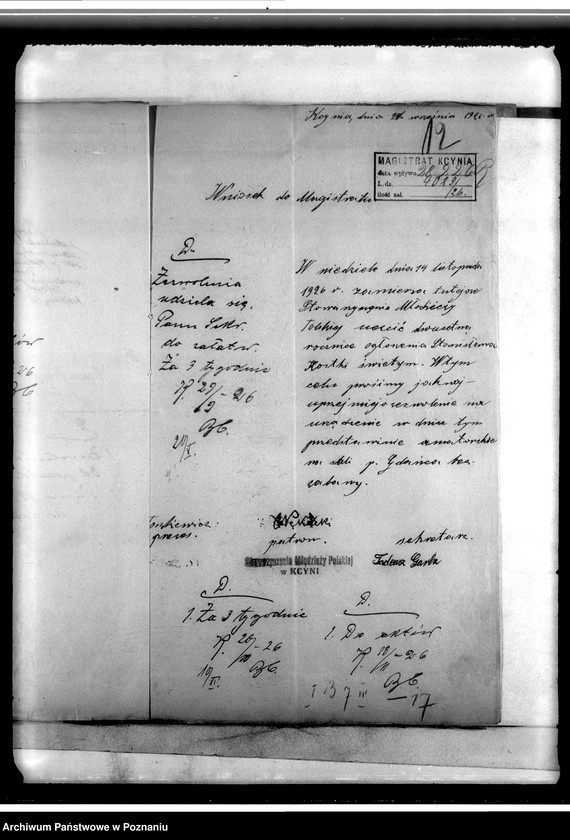 Kcynia, dnia 27. września 1926 r.
12
MAGISTRAT KCYNIA
data wpływu 28.9.26
L. dz. 4089/26.
ilość zał.
Wniosek do Magistratu
D.
Zezwolenia
udziela się.
Panu Sekr.
do załatw.
Za 3 tygodnie
K. 29/9 – 26
20/X.
W niedzielę dnia 14 listopada
1926 r. zamierza tutejsze
Stowarzyszenie Młodzieży
Polskiej uczcić dwusetną
rocznicę ogłoszenia Stanisława
Kostki świętym. W tym
celu prosimy jaknaj-
uprzejmiej o zezwolenie na
urządzenie w dniu tym
przedstawienie amatorskie
na sali p. Gdańca bez
zabawy.
prezes.
patron.
sekretarz.
Stowarzyszenie Młodzieży Polskiej
w KCYNI
Tadeusz Garba
D.
1. Za 3 tygodnie
K. 20/10 – 26
10/XI.
D.
1. Do aktów
K. 18/11 – 26
I B 7 III
17
Archiwum Państwowe w Poznaniu